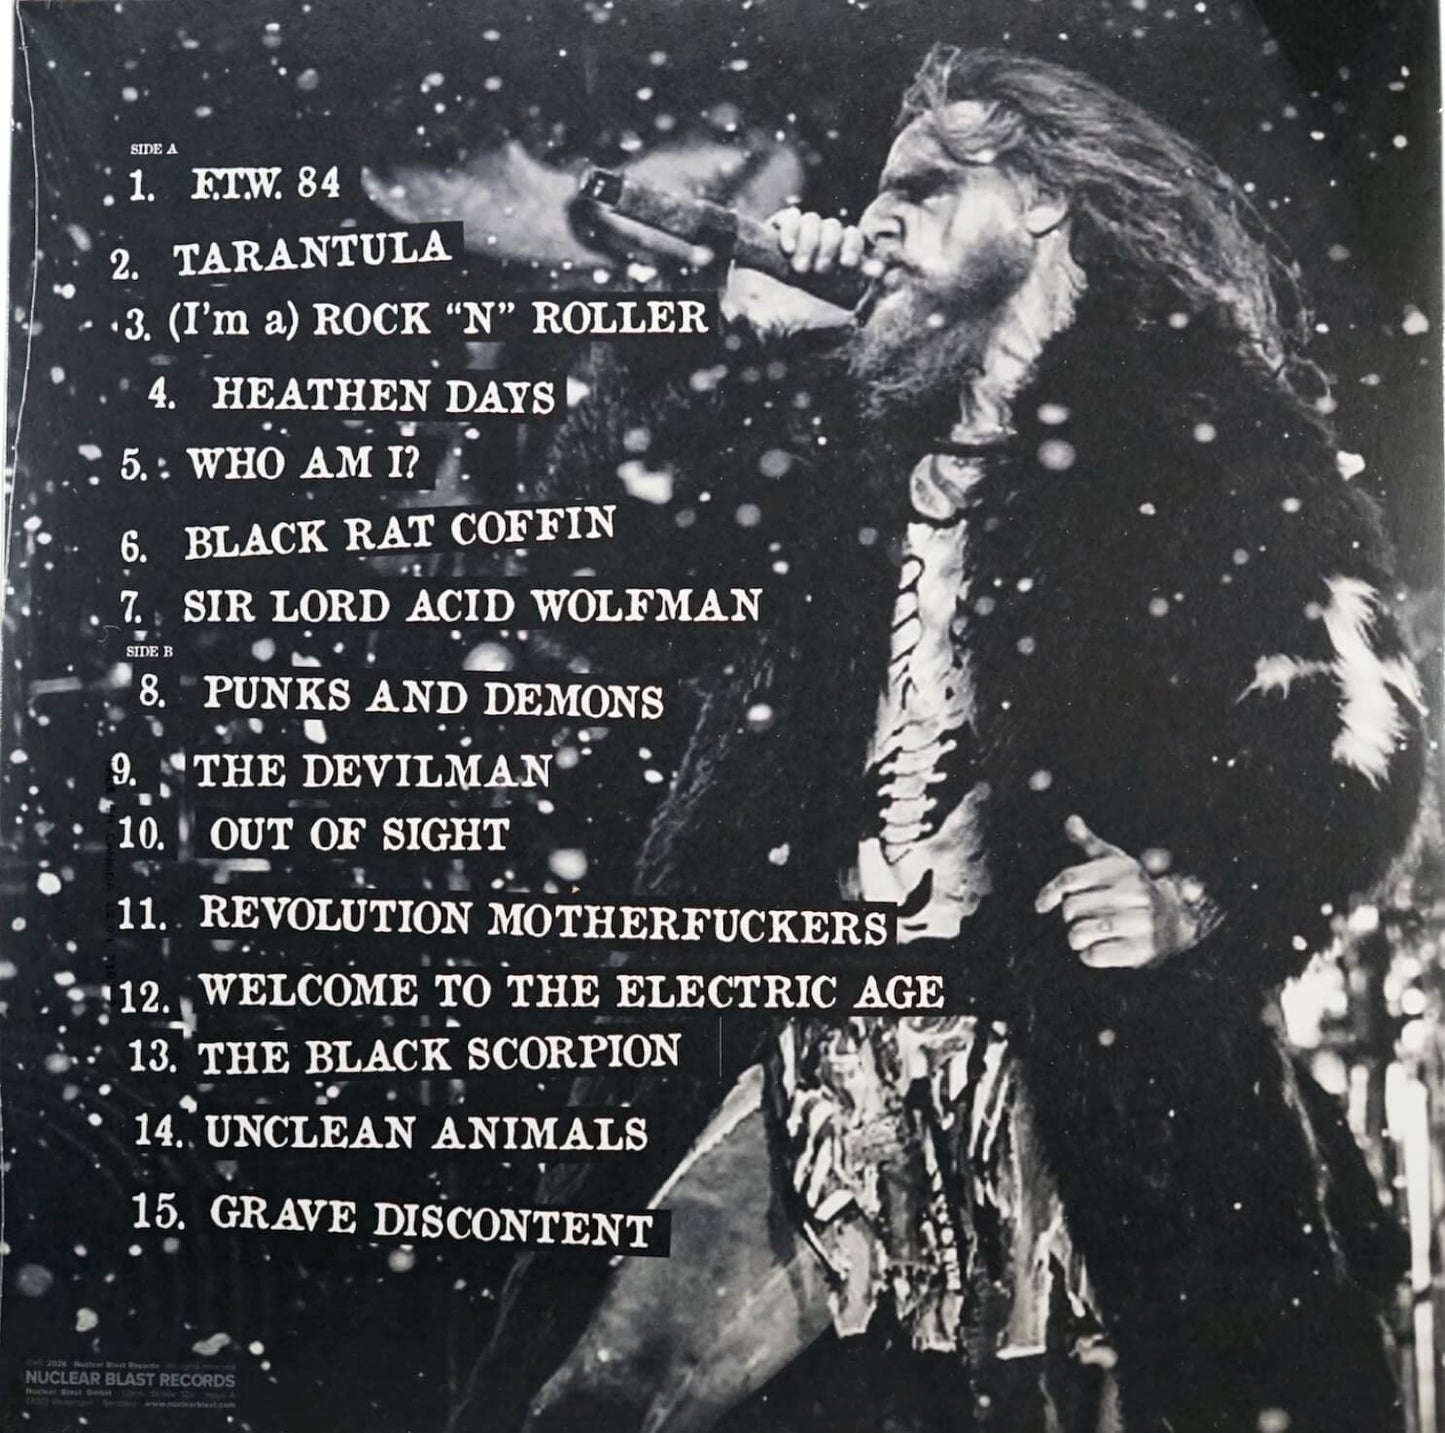 SIDE A
1. F.T.W. 84
2. TARANTULA
3. (I'm a) ROCK “N” ROLLER
4. HEATHEN DAYS
5. WHO AM I?
6. BLACK RAT COFFIN
7. SIR LORD ACID WOLFMAN
SIDE B
8. PUNKS AND DEMONS
9. THE DEVILMAN
10. OUT OF SIGHT
11. REVOLUTION MOTHERFUCKERS
12. WELCOME TO THE ELECTRIC AGE
13. THE BLACK SCORPION
14. UNCLEAN ANIMALS
15. GRAVE DISCONTENT
2026 Nuclear Blast Records All rights reserved
NUCLEAR BLAST RECORDS
Nuclear Blast GmbH
Germany www.nuclearblast.com